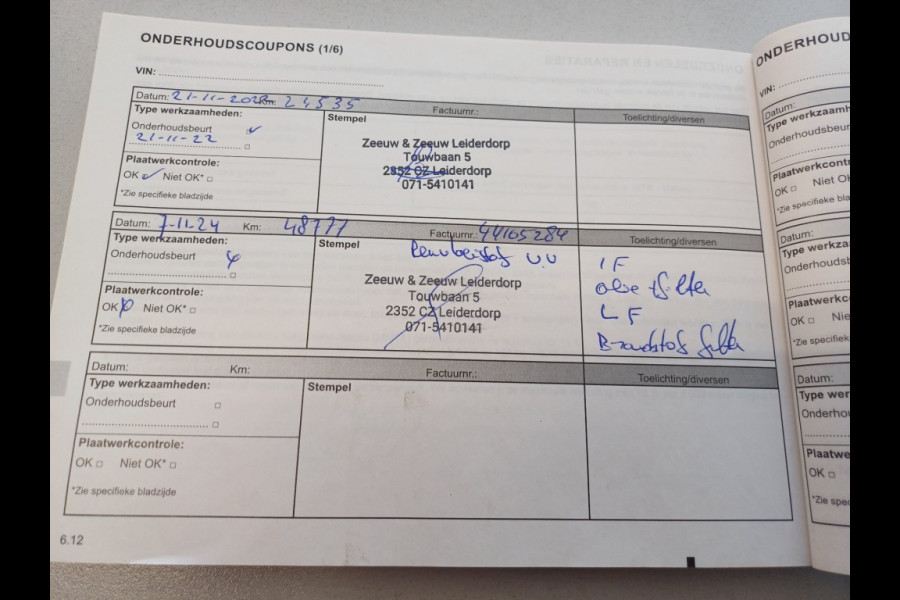 ONDERHOUDSCOUPONS (1/6)
VIN:
Datum: 21-11-2022 Km: 24535 Factuurnr.: Toelichting/diversen
Type werkzaamheden:
Onderhoudsbeurt
21-11-22
Plaatwerkcontrole:
OK Niet OK*
*Zie specifieke bladzijde
Stempel
Zeeuw & Zeeuw Leiderdorp
Touwbaan 5
2352 CZ Leiderdorp
071-5410141
Datum: 7-11-24 Km: 48777 Factuurnr.: 44105284 Toelichting/diversen
Type werkzaamheden:
Onderhoudsbeurt
Plaatwerkcontrole:
OK Niet OK*
*Zie specifieke bladzijde
Stempel
Remvloeistof V.V
Zeeuw & Zeeuw Leiderdorp
Touwbaan 5
2352 CZ Leiderdorp
071-5410141
IF
olie + filter
LF
Brandstof filter
Datum: Km: Factuurnr.: Toelichting/diversen
Type werkzaamheden:
Onderhoudsbeurt
Plaatwerkcontrole:
OK Niet OK*
*Zie specifieke bladzijde
Stempel
6.12
ONDERHOUD
VIN:
Datum:
Type werkzaamh
Onderhoudsbeur
Plaatwerkcontr
OK Niet OK
*Zie specifieke blad
Datum:
Type werkza
Onderhoudsb
Plaatwerkc
OK Nie
*Zie specifieke
Datum:
Type wer
Onderhou
Plaatwe
OK
*Zie spe